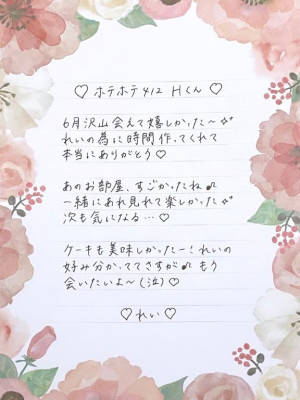 ♡ ホテホテ412 Hくん ♡
6月沢山会えて嬉しかった〜✨
れいの為に時間作ってくれて
本当にありがとう♡
あのお部屋、すごかったね♪
一緒にあれ見れて楽しかった✨
次も気になる…♡
ケーキも美味しかったー!れいの
好み分かっててさすが♪もう
会いたいよ〜(泣)♡
♡れい♡